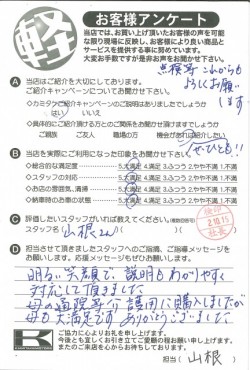 軽
お客様アンケート
当店では、お買い上げ頂いたお客様の声を可能
な限り現場に反映し、お客様により良い商品と
サービスを提供する事に努めています。
大変お手数ですが是非お声をお聞かせ下さい。
A 当店はご紹介を大切にしてあります。
ご紹介キャンペーンについてお聞かせ下さい。
点検等 これからも
よろしくお願い
します
◇カミタケご紹介キャンペーンでの説明はありましたでしょうか
はい いいえ
◇具体的にご紹介頂ける方とのご関係をお聞かせ頂けますでしょうか
ご親族 ご友人 職場の方 機会があれば紹介したい
B 当店を実際にご利用になった印象をお聞かせ下さい。
◇総合的な満足度 5.大満足 4.満足 3.ふつう 2.やや不満 1.不満
◇スタッフの対応 5.大満足 4.満足 3.ふつう 2.やや不満 1.不満
◇お店の雰囲気、清掃 5.大満足 4.満足 3.ふつう 2.やや不満 1.不満
◇納車時のお車の状態 5.大満足 4.満足 3.ふつう 2.やや不満 1.不満
C 評価したいスタッフがいれば教えてください。(複数回答可)
スタッフ名( 山根さん )
社長
D 担当させて頂きましたスタッフへのご指摘、ご指導メッセージを
お願いします。応援メッセージもぜひお願いします。
明るい笑顔で、説明もわかりやすく
対応して頂きました
母の通院等介護用に購入しましたが
母も大満足です ありがとうございました
K
ご協力に心よりお礼を申し上げます。
今後とも宜しくお引き立てご愛顧の程お願い申し上げます。
またのご来店を心からお待ちしております。
担当( 山根 )